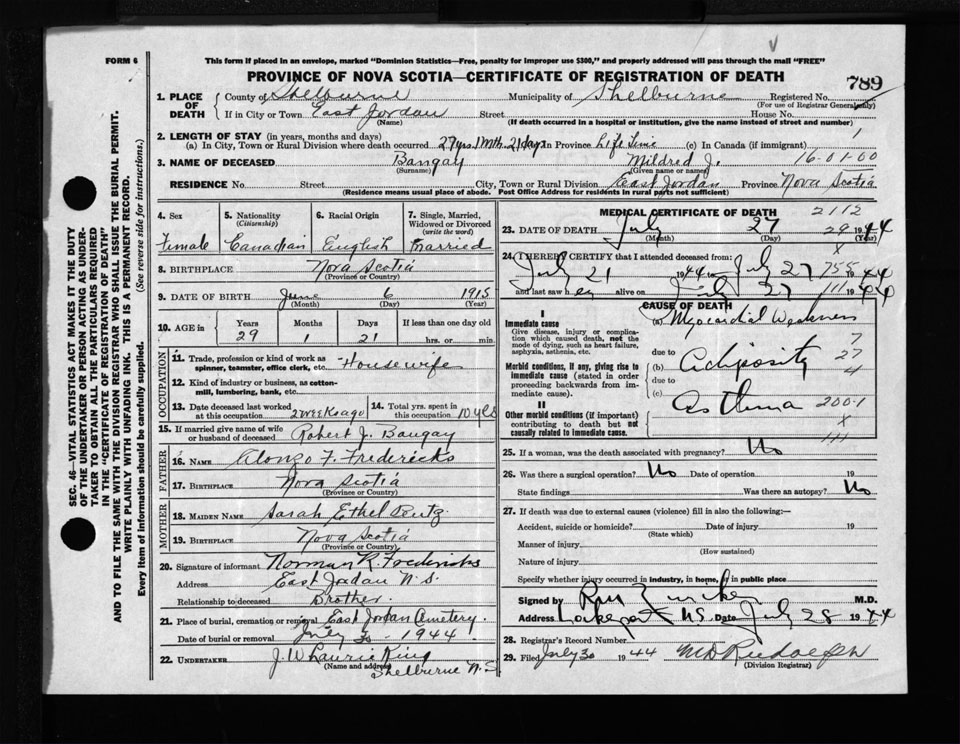 FORM 6
This form if placed in an envelope, marked "Dominion Statistics—Free, penalty for improper use $300," and properly addressed will pass through the mail "FREE"
PROVINCE OF NOVA SCOTIA—CERTIFICATE OF REGISTRATION OF DEATH
789
1. PLACE OF DEATH County of Shelburne Municipality of Shelburne Registered No.
(For use of Registrar General only)
If in City or Town East Jordan Street House No.
(Name) (If death occurred in a hospital or institution, give the name instead of street and number)
2. LENGTH OF STAY (in years, months and days)
(a) In City, Town or Rural Division where death occurred 27 yrs. 1 Mth. 21 days In Province Life Time (c) In Canada (if immigrant)
3. NAME OF DECEASED Bangay Mildred J. 16-01-00
(Surname) (Given name or names)
RESIDENCE No. Street City, Town or Rural Division East Jordan Province Nova Scotia
(Residence means usual place of abode. Post Office Address for residents in rural parts not sufficient)
SEC. 46—VITAL STATISTICS ACT MAKES IT THE DUTY OF THE UNDERTAKER OR PERSON ACTING AS UNDERTAKER TO OBTAIN ALL THE PARTICULARS REQUIRED IN THE "CERTIFICATE OF REGISTRATION OF DEATH"
AND TO FILE THE SAME WITH THE DIVISION REGISTRAR WHO SHALL ISSUE THE BURIAL PERMIT.
WRITE PLAINLY WITH UNFADING INK. THIS IS A PERMANENT RECORD.
Every item of Information should be carefully supplied. (See reverse side for instructions.)
4. Sex Female
5. Nationality (Citizenship) Canadian
6. Racial Origin English
7. Single, Married, Widowed or Divorced (write the word) Married
8. BIRTHPLACE Nova Scotia
(Province or Country)
9. DATE OF BIRTH June 6 1915
(Month) (Day) (Year)
10. AGE in Years Months Days If less than one day old
29 1 21 hrs. or min.
OCCUPATION
11. Trade, profession or kind of work as spinner, teamster, office clerk, etc. Housewife
12. Kind of industry or business, as cotton-mill, lumbering, bank, etc.
13. Date deceased last worked at this occupation 2 weeks ago
14. Total yrs. spent in this occupation 10 yrs
15. If married give name of wife or husband of deceased Robert J. Bangay
FATHER
16. NAME Alonzo F. Fredericks
17. BIRTHPLACE Nova Scotia
(Province or Country)
MOTHER
18. MAIDEN NAME Sarah Ethel
19. BIRTHPLACE Nova Scotia
(Province or Country)
20. Signature of informant Norman R. Fredericks
Address East Jordan N.S.
Relationship to deceased Brother.
21. Place of burial, cremation or removal East Jordan Cemetery.
Date of burial or removal July 30 1944.
22. UNDERTAKER J. W Laurie King
(Name and address) Shelburne N.S
MEDICAL CERTIFICATE OF DEATH 2112
23. DATE OF DEATH July 27 29 1944
(Month) (Day) (Year)
x
24. I HEREBY CERTIFY that I attended deceased from:
July 21 1944 to July 27 755 1944
and last saw her alive on July 27 111 1944
CAUSE OF DEATH
I
Immediate cause
Give disease, injury or complication which caused death, not the mode of dying, such as heart failure, asphyxia, asthenia, etc.
(a) Myocardial Weakness
due to
7
27
4
Morbid conditions, if any, giving rise to immediate cause (stated in order proceeding backwards from immediate cause).
(b) Adiposity
due to
(c)
II
Other morbid conditions (if important) contributing to death but not causally related to immediate cause.
Asthma 200-1
x
111
25. If a woman, was the death associated with pregnancy? No
26. Was there a surgical operation? No Date of operation 19
State findings Was there an autopsy? No
27. If death was due to external causes (violence) fill in also the following:—
Accident, suicide or homicide? Date of injury 19
(State which)
Manner of injury
(How sustained)
Nature of injury
Specify whether injury occurred in industry, in home, or in public place
Signed by M.D.
Address Lockeport N.S. Date July 28 1944
28. Registrar's Record Number
29. Filed July 30 1944 M D Rudolph
(Division Registrar)